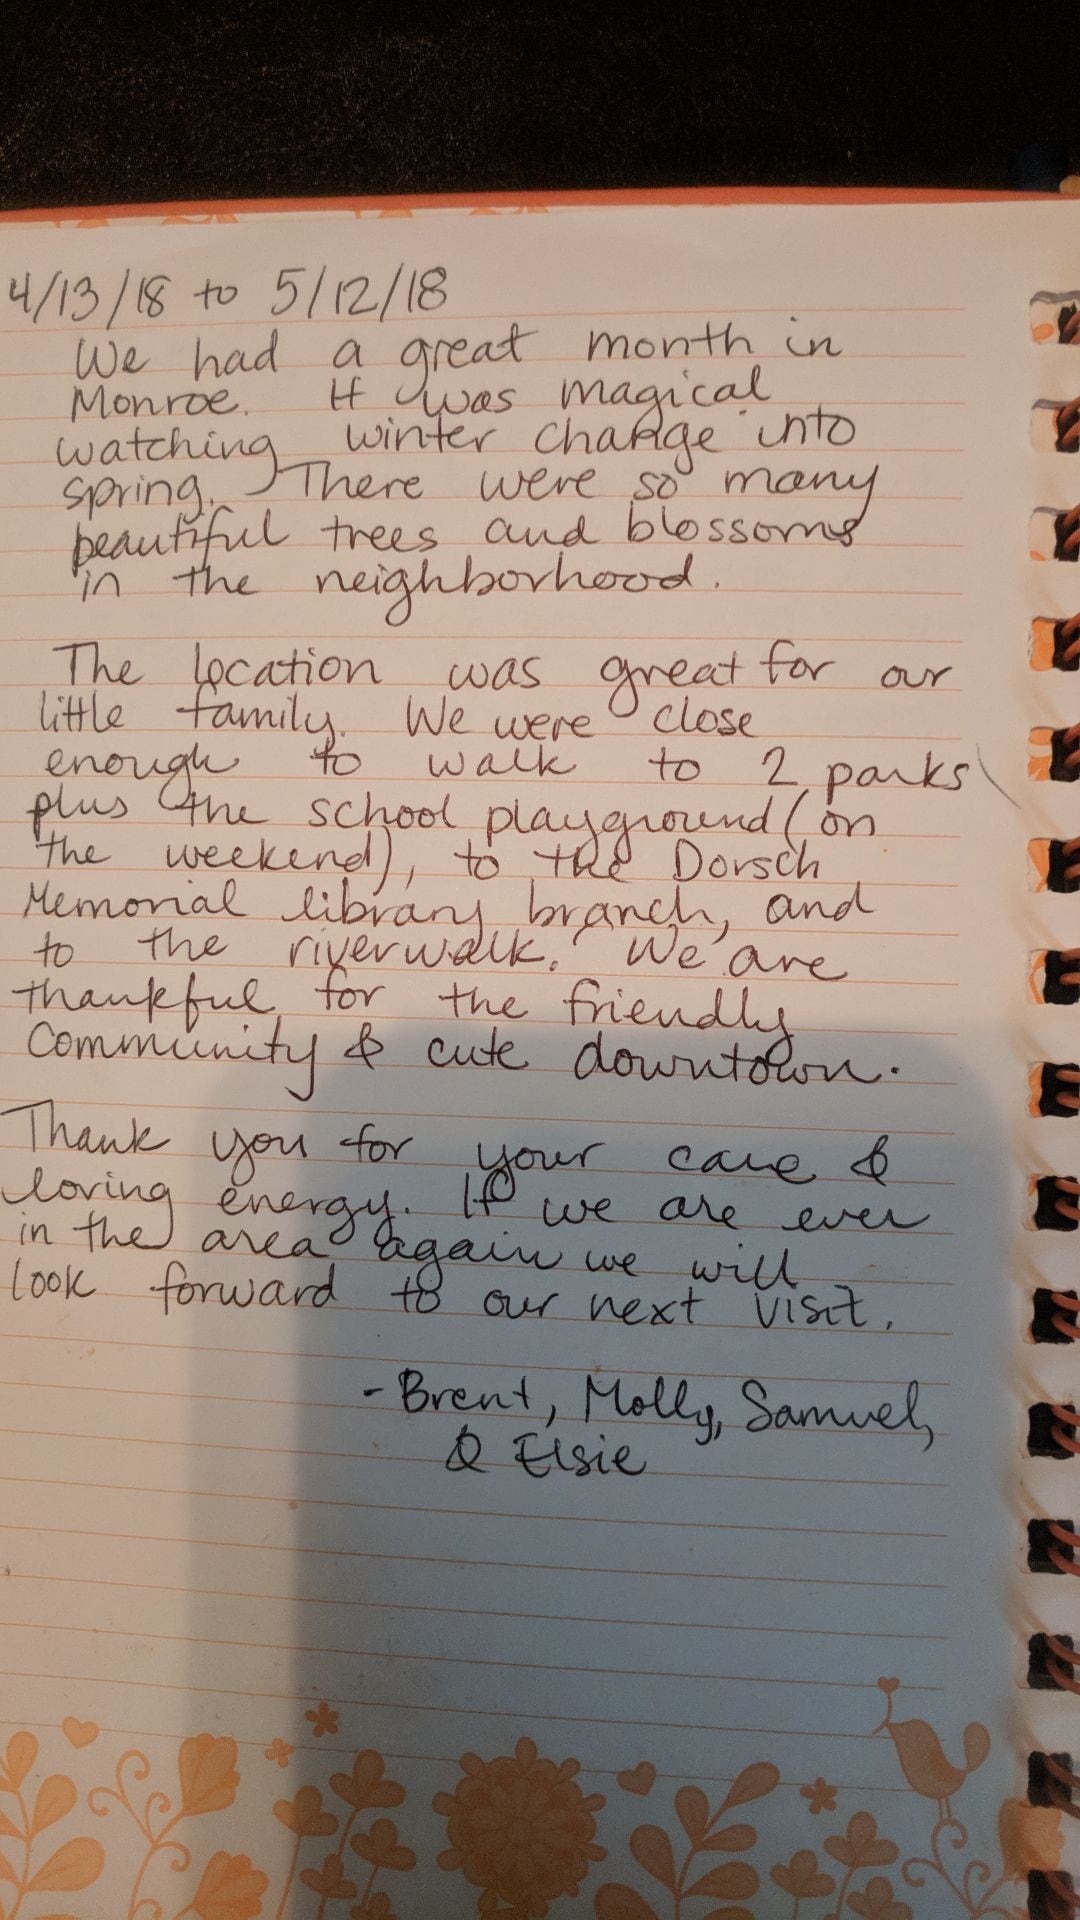 4/13/18 to 5/12/18
We had a great month in
Monroe. It was magical
watching winter change into
spring. There were so many
beautiful trees and blossoms
in the neighborhood.
The location was great for our
little family. We were close
enough to walk to 2 parks
plus the school playground (on
the weekend), to the Dorsch
Memorial library branch, and
to the riverwalk. We are
thankful for the friendly
Community & cute downtown.
Thank you for your care &
loving energy. If we are ever
in the area again we will
look forward to our next visit.
- Brent, Molly, Samuel,
& Elsie